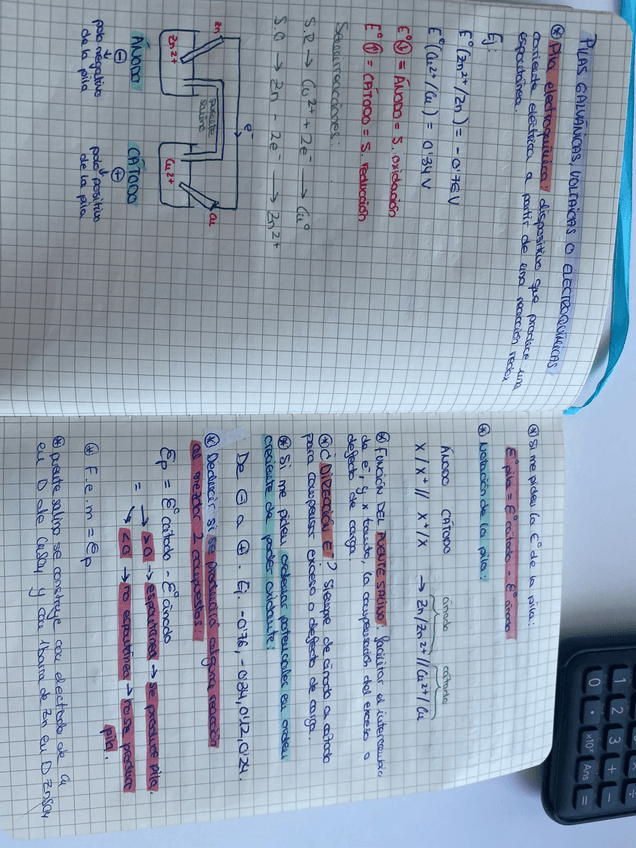 PILAS GALVÁNICAS, VOLTAICAS O ELECTROQUÍMICAS
* Pila electroquímica: dispositivo que produce una
corriente eléctrica a partir de una reacción redox
espontánea.
Ej:
E°(Zn²⁺/Zn) = -0'76 V
E°(Cu²⁺/Cu) = 0'34 V
E°(↓) = ÁNODO = S. oxidación
E°(↑) = CÁTODO = S. reducción
Semirreacciones:
S.R → Cu²⁺ + 2e⁻ → Cu⁰
S.O → Zn - 2e⁻ → Zn²⁺
e⁻
Zn
Cu
puente
salino
Zn²⁺
Cu²⁺
ÁNODO
CÁTODO
⊖
⊕
polo negativo
de la pila
polo positivo
de la pila
* Si me piden la E° de la pila:
E°pila = E°cátodo - E°ánodo
* Notación de la pila:
ÁNODO CÁTODO
ánodo cátodo
X/X⁺ // X⁺/X → Zn/Zn²⁺//Cu²⁺/Cu
* FUNCIÓN DEL PUENTE SALINO: facilitar el intercambio
de e⁻, y x tanto, la compensación del exceso o
defecto de carga.
* ¿DIRECCIÓN E⁻? Siempre de ánodo a cátodo
para compensar exceso o defecto de carga.
* Si me piden ordenar potenciales en orden
creciente de poder oxidante:
De ⊖ a ⊕. Ej: -0'76, -0'34, 0'12, 0'24.
* Deducir si se producirá alguna reacción
al mezclar 2 compuestos:
Ep = E°cátodo - E°ánodo
= → >0 → espontánea → se produce pila.
→ <0 → no espontánea → no se produce
pila.
* F.e.m = Ep
* puente salino se construye con electrodo de Cu
en D de CuSO₄ y con 1 barra de Zn en D ZnSO₄
1
2
3
+
-
0
.
×10ˣ
Ans
=